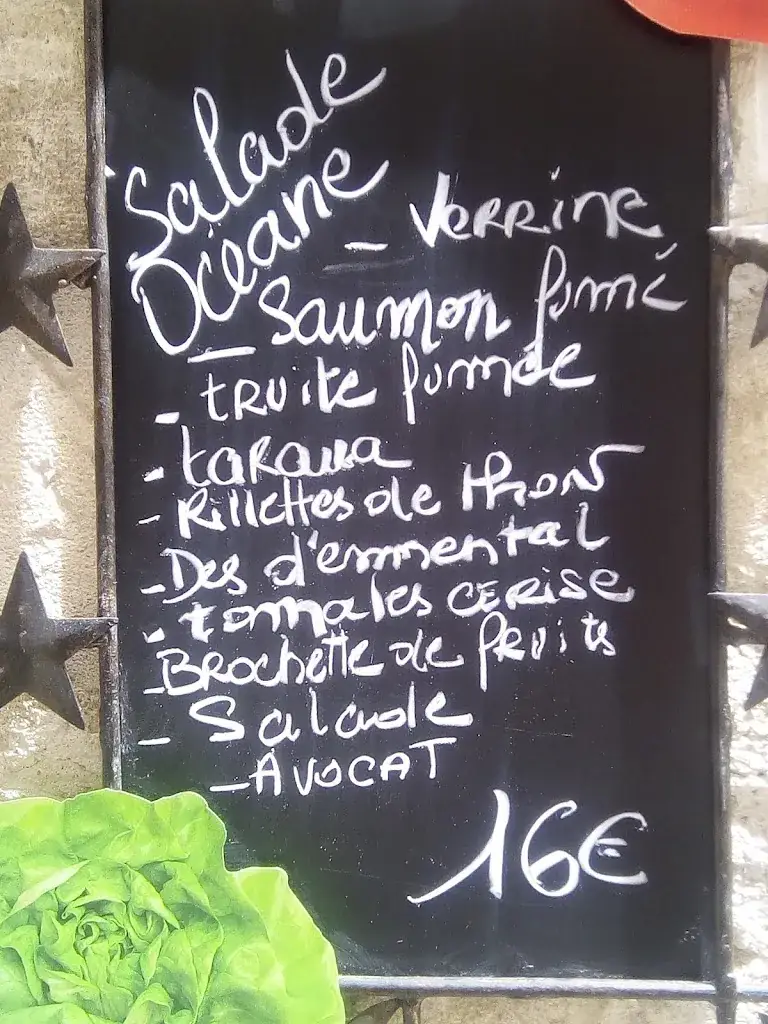 Salade
Océane
- Verrine
- Saumon fumé
- truite fumée
- tarama
- Rillettes de thon
- Des d'emmental
- tomates cerise
- Brochette de fruits
- Salade
- Avocat
16€